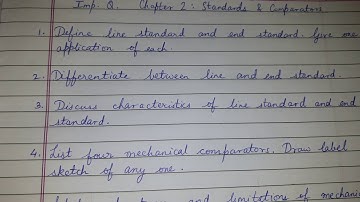 Imp. Q. Chapter 2 : Standards & Comparators
1. Define line standard and end standard. Give one
application of each.
2. Differentiate between line and end standard.
3. Discuss characteristics of line standard and end
standard.
4. List four mechanical comparators. Draw label
sketch of any one.
and limitations of mechanic